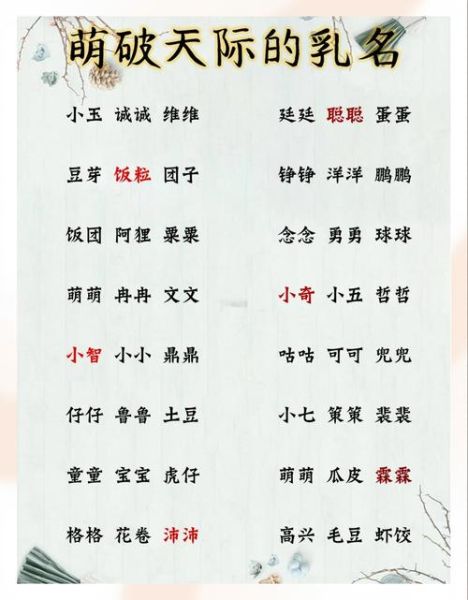 萌破天际的乳名
小玉 诚诚 维维
豆芽 饭粒 团子
饭团 阿狸 粟粟
萌萌 冉冉 文文
小智 小小 鼎鼎
仔仔 鲁鲁 土豆
童童 宝宝 虎仔
格格 花卷 沛沛
廷廷 聪聪 蛋蛋
铮铮 洋洋 鹏鹏
念念 勇勇 球球
小奇 小五 哲哲
咕咕 可可 兜兜
小七 策策 裴裴
萌萌 瓜皮 霖霖
高兴 毛豆 虾饺